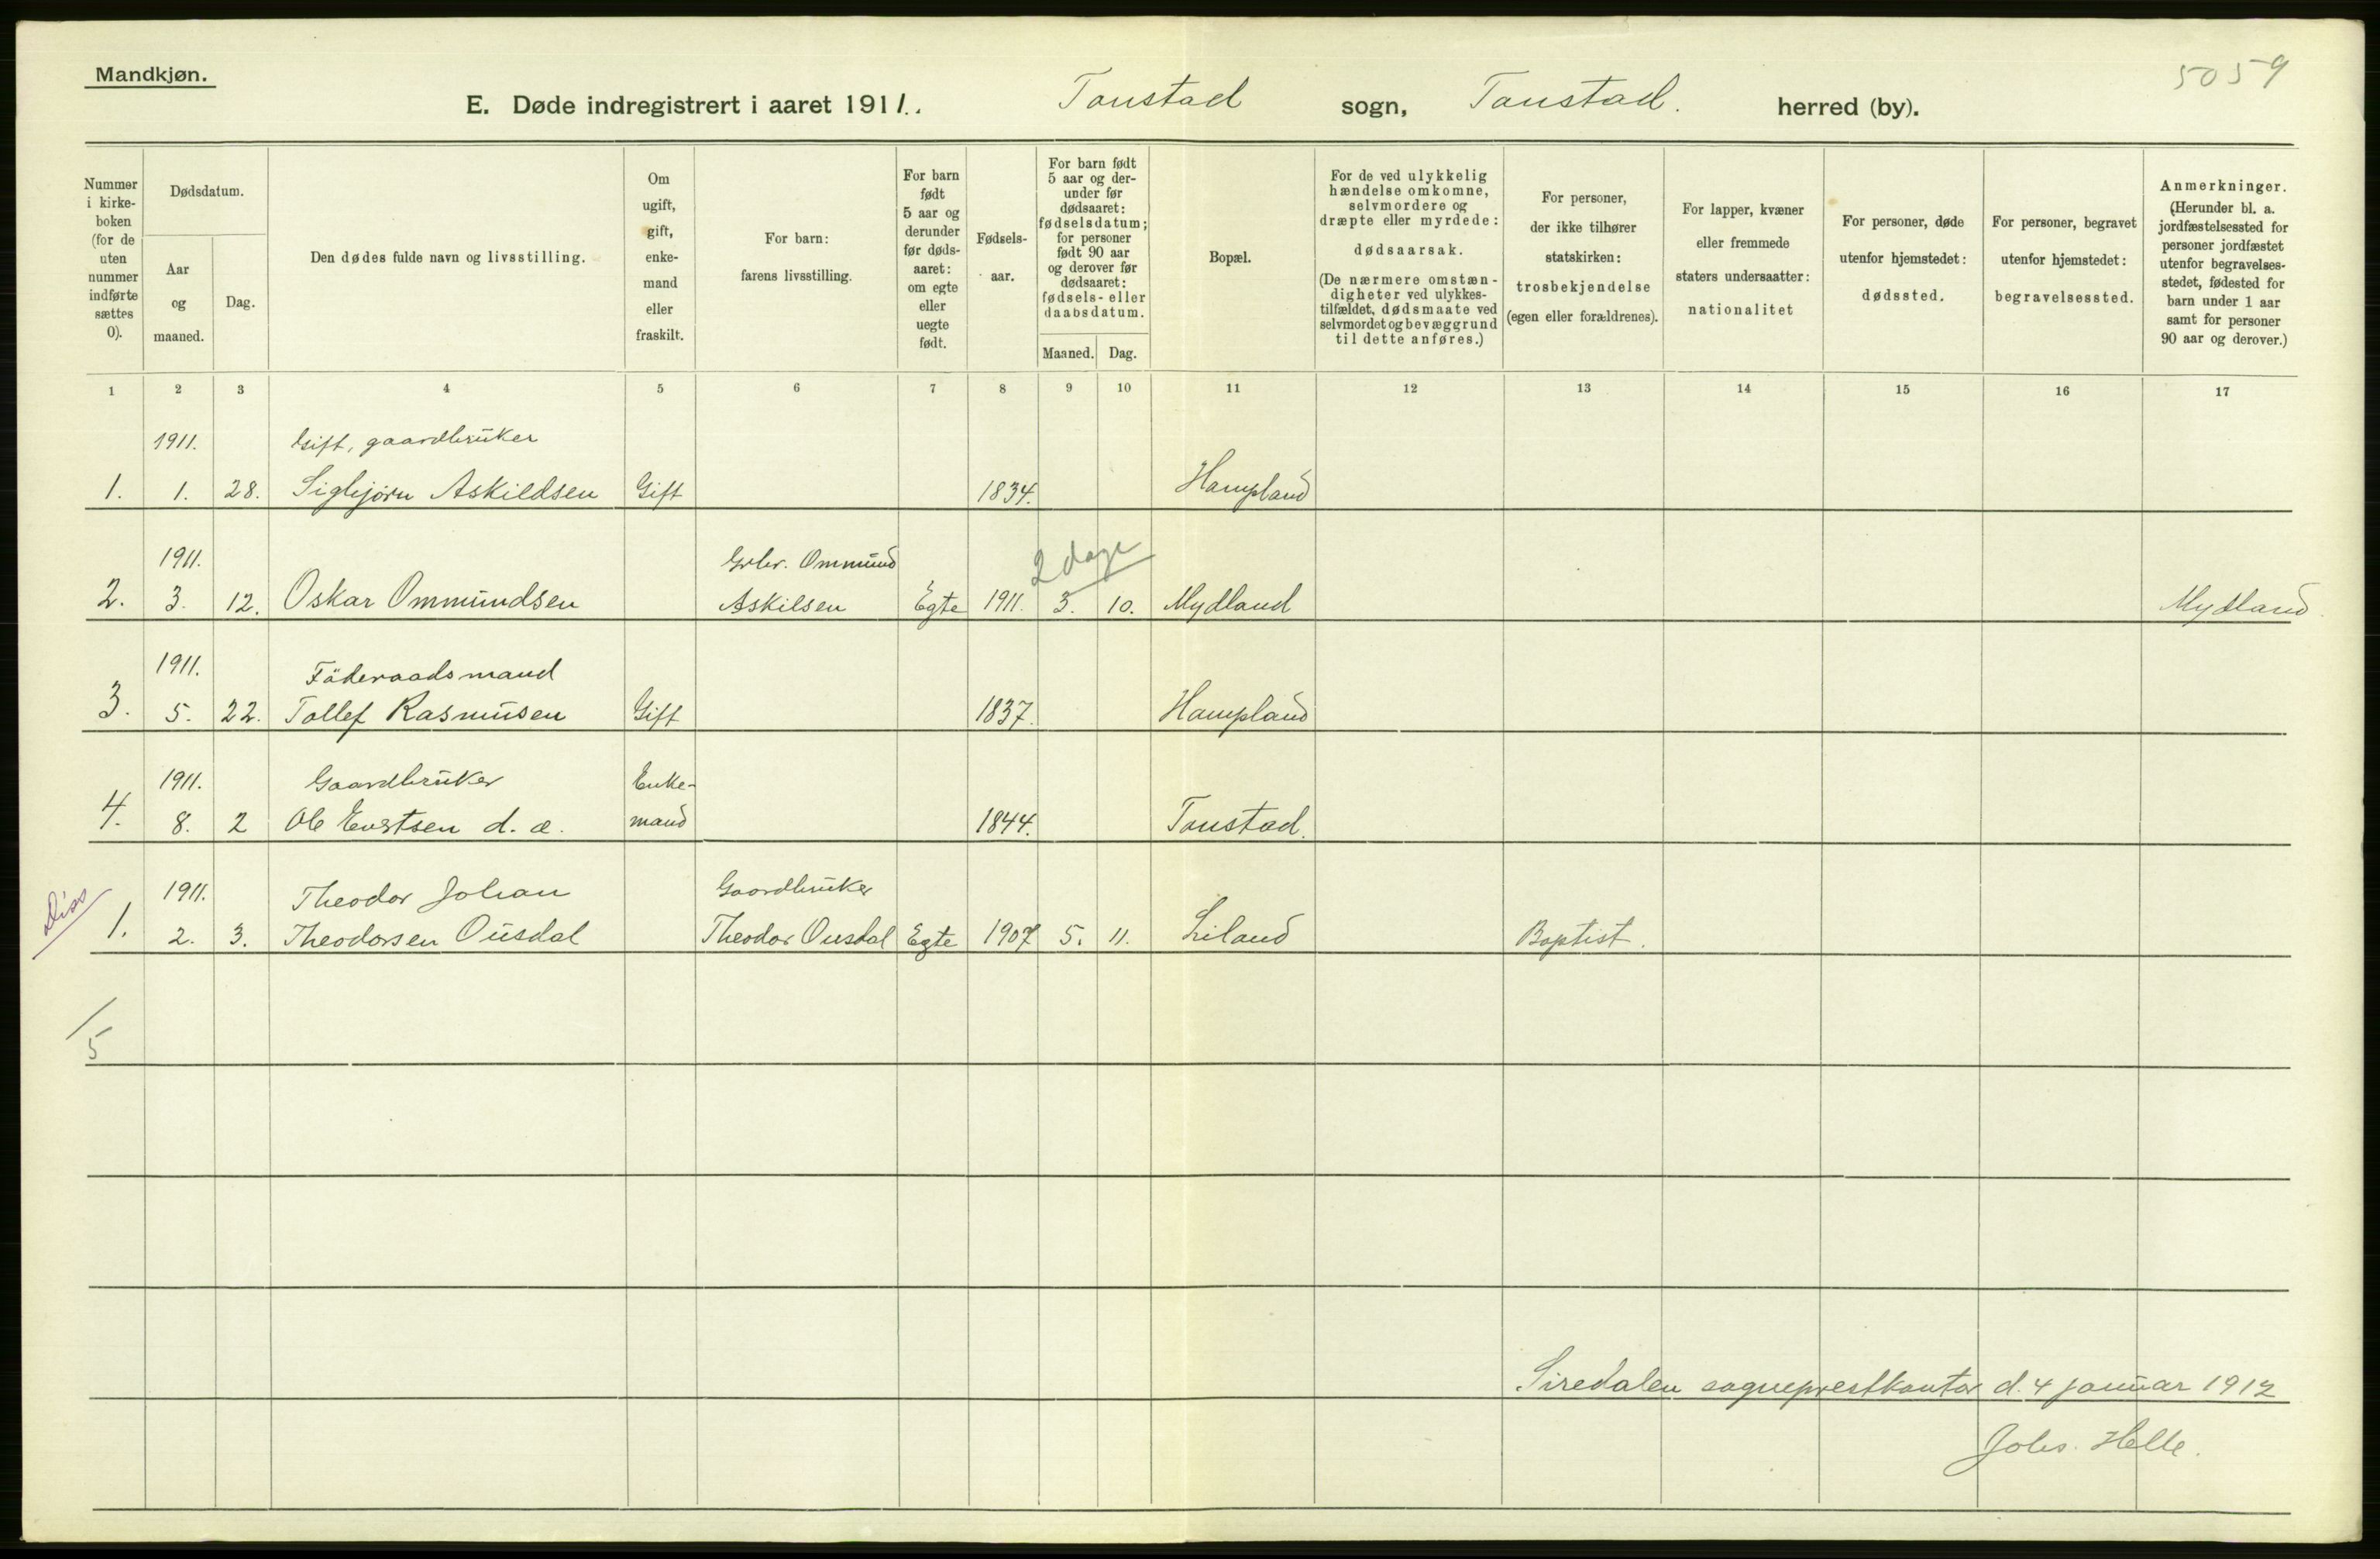 Mandkjøn.
5059
E. Døde indregistrert i aaret 1911. Tonstad sogn, Tonstad. herred (by).
Nummer i kirke-boken (for de uten nummer indførte sættes 0).
Dødsdatum.
Aar og maaned.
Dag.
Den dødes fulde navn og livsstilling.
Om ugift, gift, enke-mand eller fraskilt.
For barn: farens livsstilling.
For barn født 5 aar og derunder før døds-aaret: om egte eller uegte født.
Fødsels-aar.
For barn født 5 aar og der-under før dødsaaret: fødselsdatum; for personer født 90 aar og derover før dødsaaret: fødsels- eller daabsdatum.
Maaned.
Dag.
Bopæl.
For de ved ulykkelig hændelse omkomne, selvmordere og dræpte eller myrdede: dødsaarsak. (De nærmere omstæn-digheter ved ulykkes-tilfældet, dødsmaate ved selvmordet og bevæggrund til dette anføres.)
For personer, der ikke tilhører statskirken: trosbekjendelse (egen eller forældrenes).
For lapper, kvæner eller fremmede staters undersaatter: nationalitet
For personer, døde utenfor hjemstedet: dødssted.
For personer, begravet utenfor hjemstedet: begravelsessted.
Anmerkninger. (Herunder bl. a. jordfæstelsessted for personer jordfæstet utenfor begravelses-stedet, fødested for barn under 1 aar samt for personer 90 aar og derover.)
1 2 3 4 5 6 7 8 9 10 11 12 13 14 15 16 17
1911. Gift, gaardbruker
1. 1. 28. Sigbjørn Askildsen Gift 1834. Hompland
1911. Grbr. Ommund 2 dage
2. 3. 12. Oskar Ommundsen Askilsen Egte 1911. 3. 10. Mydland Mydland
1911. Föderaadsmand
3. 5. 22. Tollef Rasmusen Gift 1837. Hompland
1911. Gaardbruker Enke-
4. 8. 2 Ole Evertsen d. æ. mand 1844. Tonstad.
Diss 1911. Theodor Johan Gaardbruker
1. 2. 3. Theodorsen Ousdal Theodor Ousdal Egte 1907 5. 11. Liland Baptist.
5
Siredalen sogneprestkontor d. 4 januar 1912
Johs. Helle.